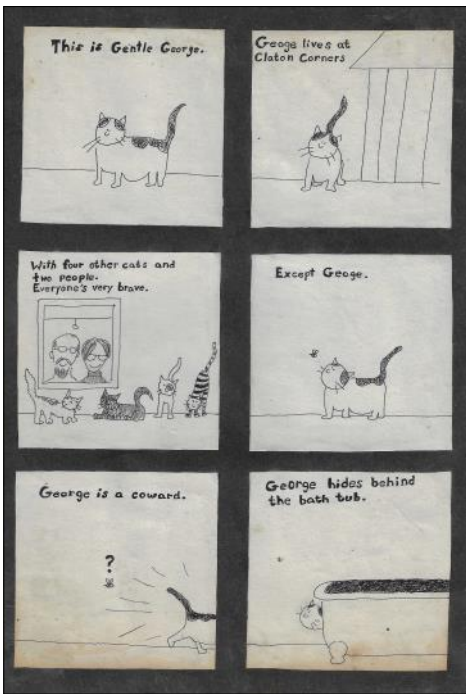 This is Gentle George.
Geoge lives at
Claton Corners
With four other cats and
two people.
Everyone's very brave.
Except Geoge.
George is a coward.
?
George hides behind
the bath tub.